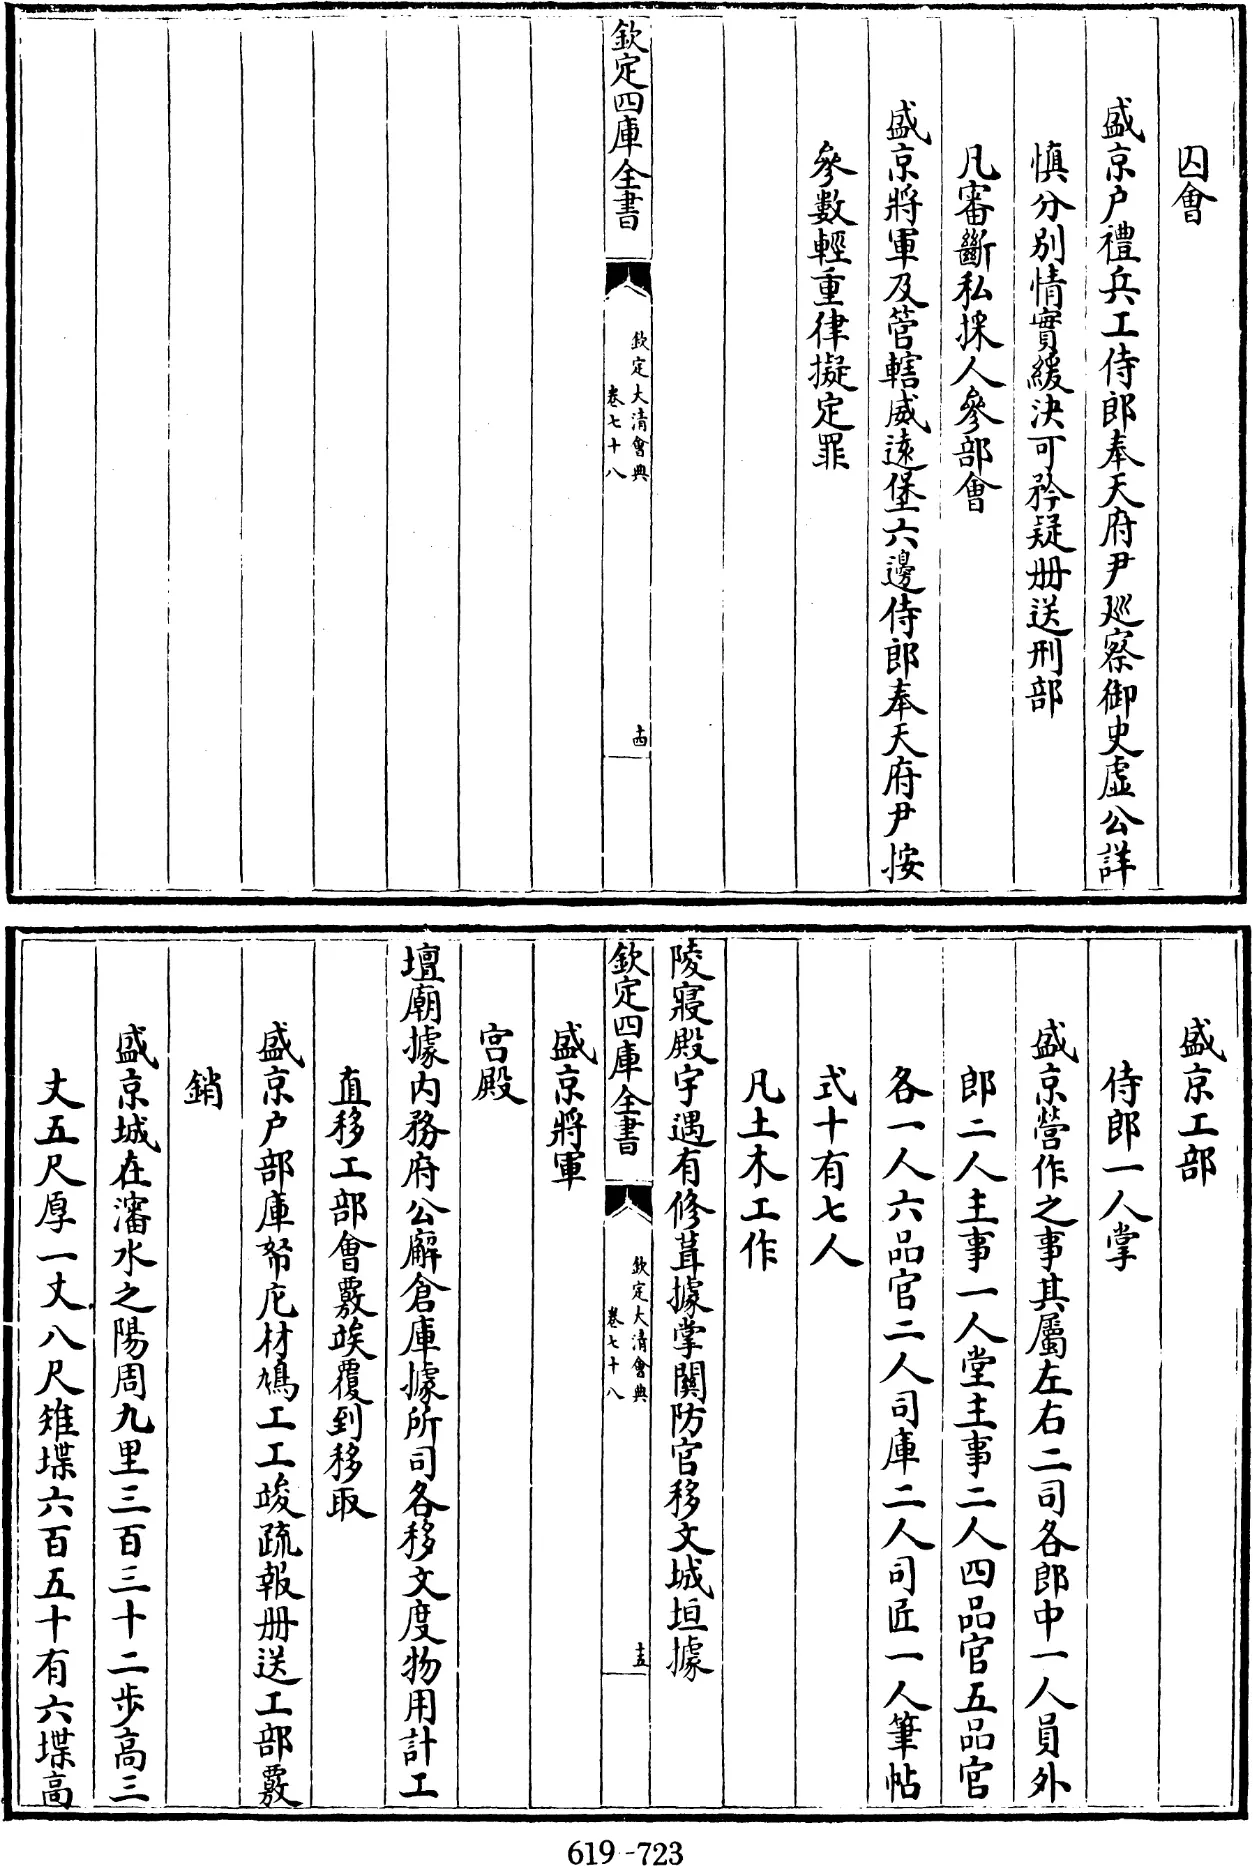 囚會
盛京户禮兵工侍郎奉天府尹廵察御史虛公詳
慎分別情實緩決可矜疑册送刑部
凡審斷私採人參部會
盛京將軍及管轄威遠堡六邊侍郎奉天府尹按
參數輕重律擬定罪
欽定四庫全書
欽定大清會典
卷七十八
十四
盛京工部
侍郎一人掌
盛京營作之事其屬左右二司各郎中一人員外
郎二人主事一人堂主事二人四品官五品官
各一人六品官二人司庫二人司匠一人筆帖
式十有七人
凡土木工作
陵寢殿宇遇有修葺據掌關防官移文城垣據
欽定四庫全書
欽定大清會典
卷七十八
十五
盛京將軍
宫殿
壇廟據内務府公廨倉庫據所司各移文度物用計工
直移工部會覈竢覆到移取
盛京户部庫帑庀材鳩工工竣疏報册送工部覈
銷
盛京城在瀋水之陽周九里三百三十二步高三
丈五尺厚一丈八尺雉堞六百五十有六堞高
619-723